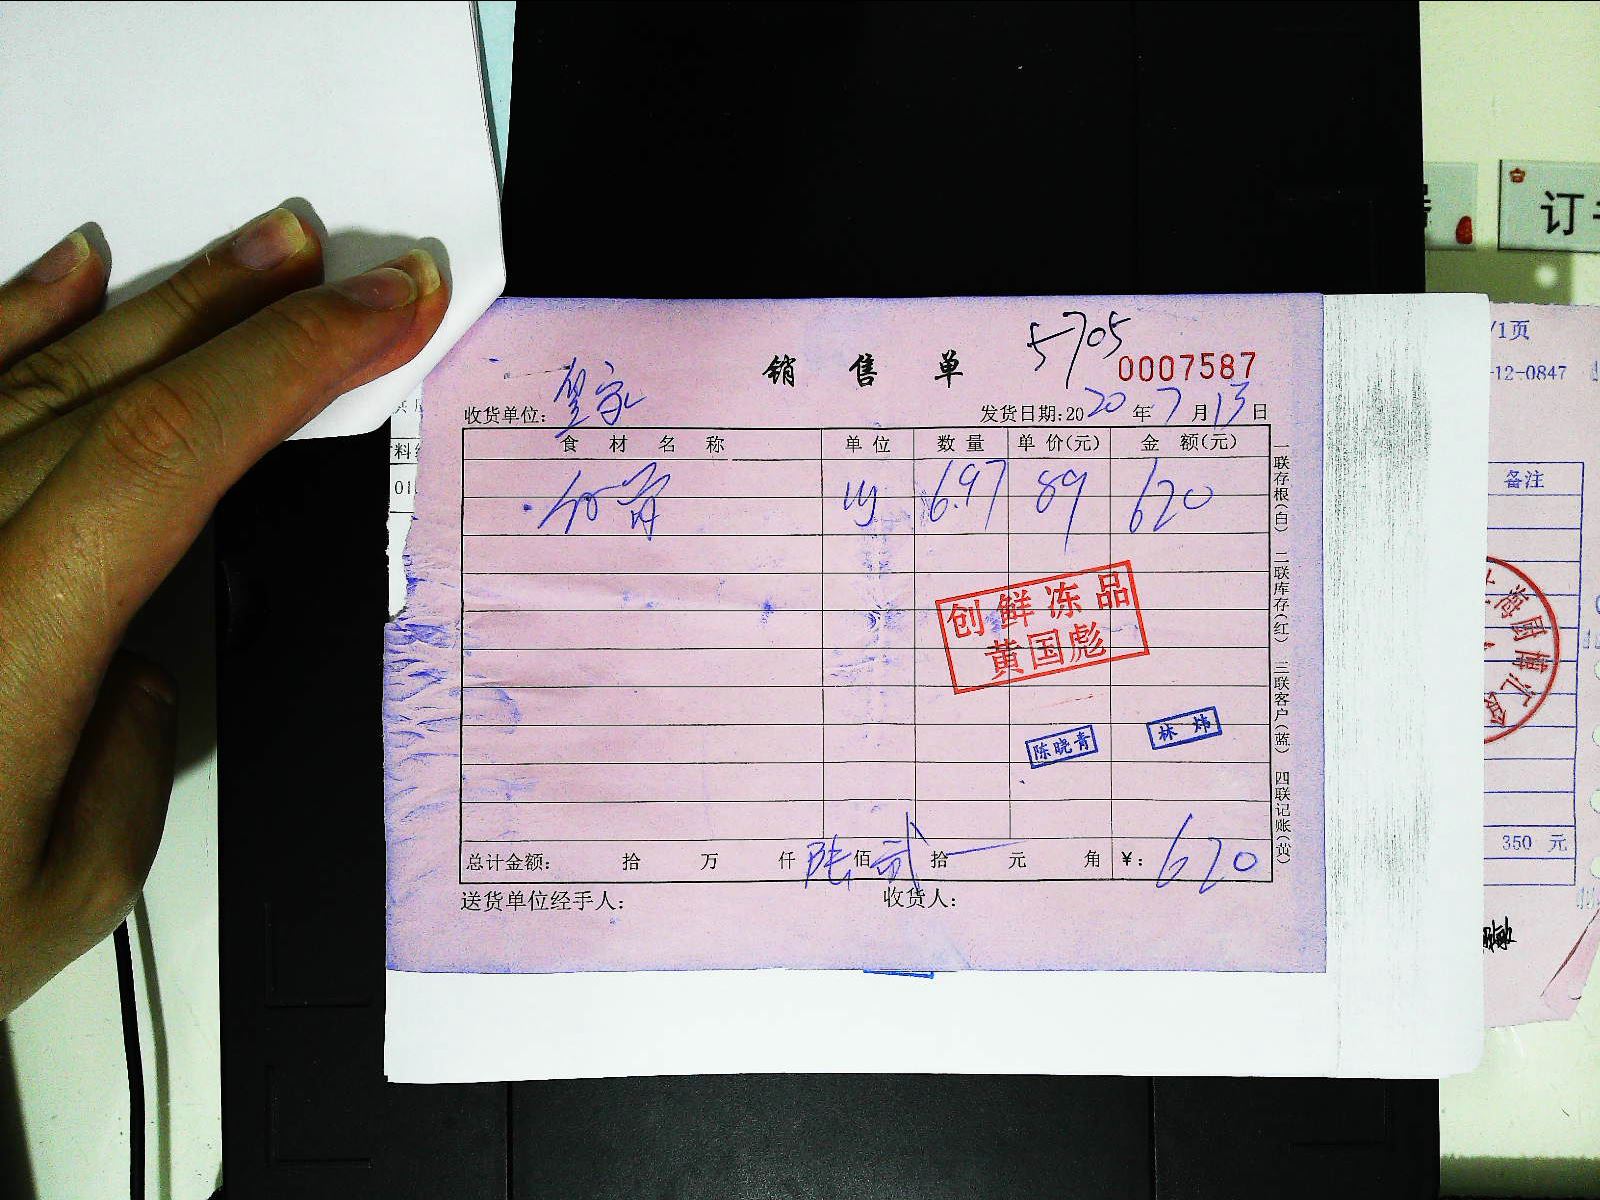 订
/1页
5705
销售单 0007587
-12-0847
收货单位：皇家 发货日期:2020年7月13日
食材名称 单位 数量 单价(元) 金额(元)
6.97 89 620
料
01
备注
一联存根(白) 二联库存(红) 三联客户(蓝) 四联记账(黄)
创鲜冻品
黄国彪
海厨博汇
陈晓青 林炜
总计金额： 拾 万 仟陆佰贰拾 元 角 ¥：620
350 元
送货单位经手人： 收货人：